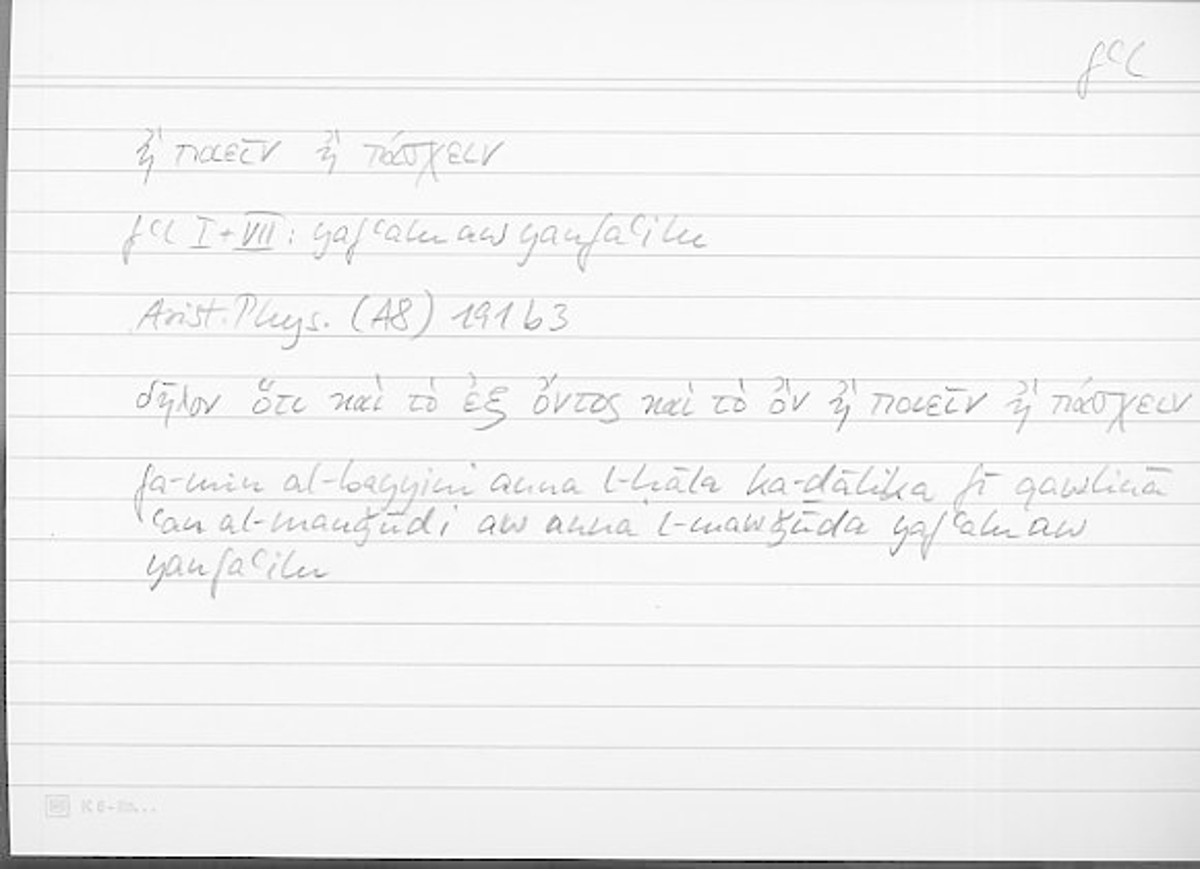 fʿl
ἢ ποιεῖν ἢ πάσχειν
fʿl I + VII: yafʿalu aw yanfaʿilu
Arist. Phys. (A8) 191 b3
δῆλον ὅτι καὶ τὸ ἐξ ὄντος καὶ τὸ ὂν ἢ ποιεῖν ἢ πάσχειν
fa-min al-bayyini anna l-ḥāla ka-ḏālika fī qawlinā
ʿan al-mawǧūdi aw anna l-mawǧūda yafʿalu aw
yanfaʿilu